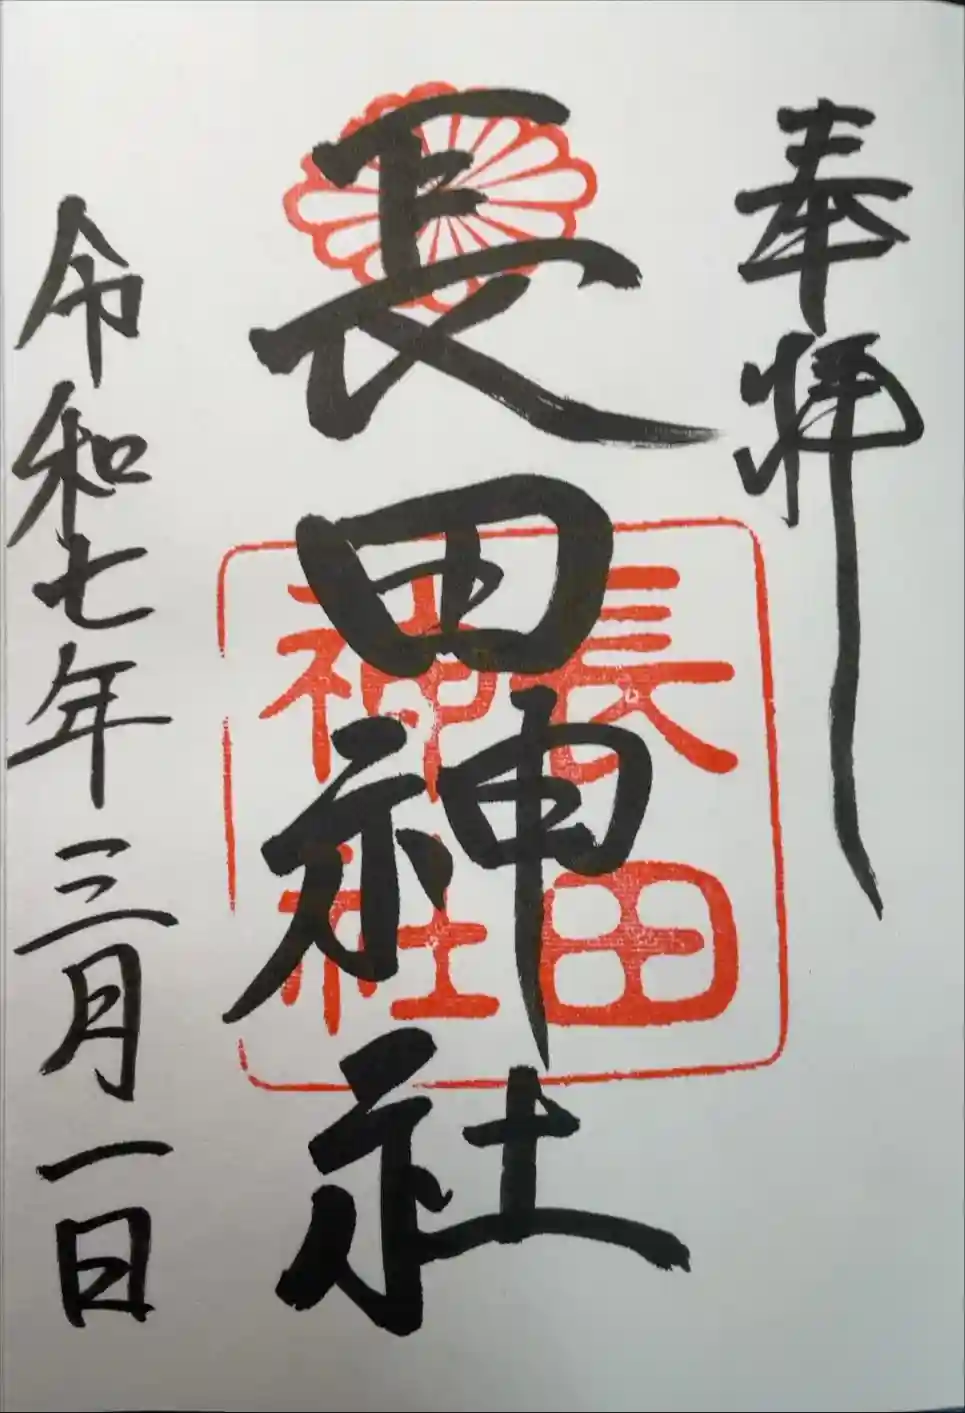 奉拝
長田神社
長田
神社
令和七年三月一日